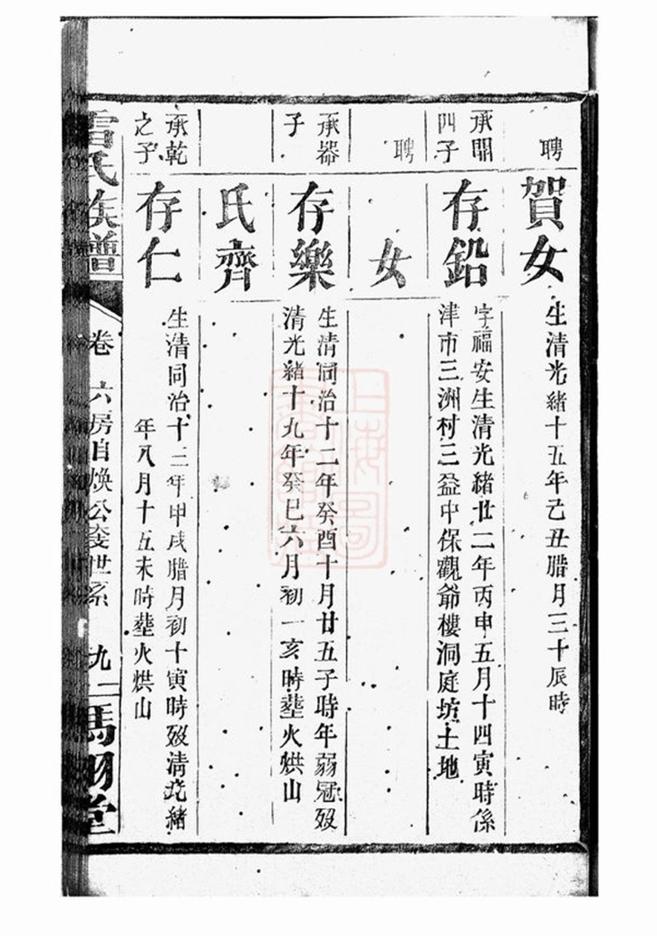 聘
賀女
生清光緒十五年己丑腊月三十辰時
承開
四子
存鉛
字福安生清光緒廿二年丙申五月十四寅時係
津市三洲村三益中保觀爺樓洞庭坊土地
聘
女
承器
子
存樂
生清同治十二年癸酉十月廿五子時年弱冠殁
清光緒十九年癸巳六月初一亥時塟火烘山
氏齊
承乾
之子
存仁
生清同治十三年甲戌腊月初十寅時殁清光緒
年八月十五未時塟火烘山
氏族譜
卷
六房自煥公癹世系
九二
堂